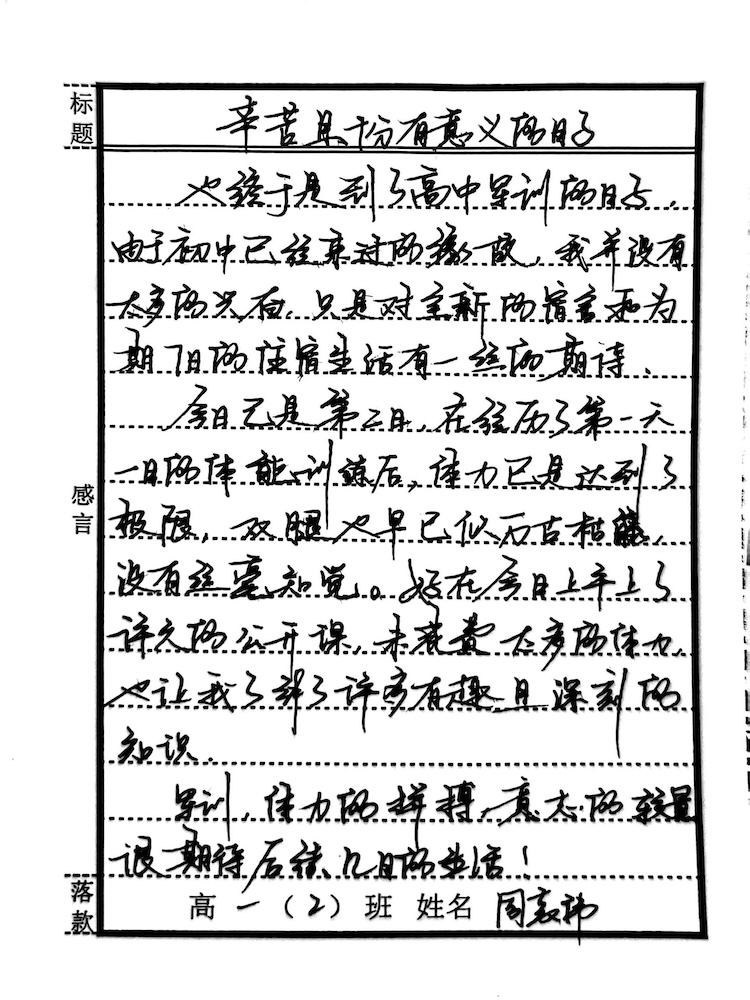 标题
辛苦且十分有意义的日子
也终于是到了高中军训的日子，
由于初中已经来过的缘故，我并没有
太多的兴奋，只是对全新的宿舍和为
期7日的住宿生活有一丝的期待．
今日已是第二日，在经历了第一天
一日的体能训练后，体力已是达到了
极限，双腿也早已似万古枯藤，
没有丝毫知觉。好在今日上午上了
许久的公开课，未花费太多的体力，
也让我了解了许多有趣且深刻的
知识．
军训，体力的拼搏，意志的较量
很期待后续几日的生活！
感言
落款
高一（2）班 姓名 周